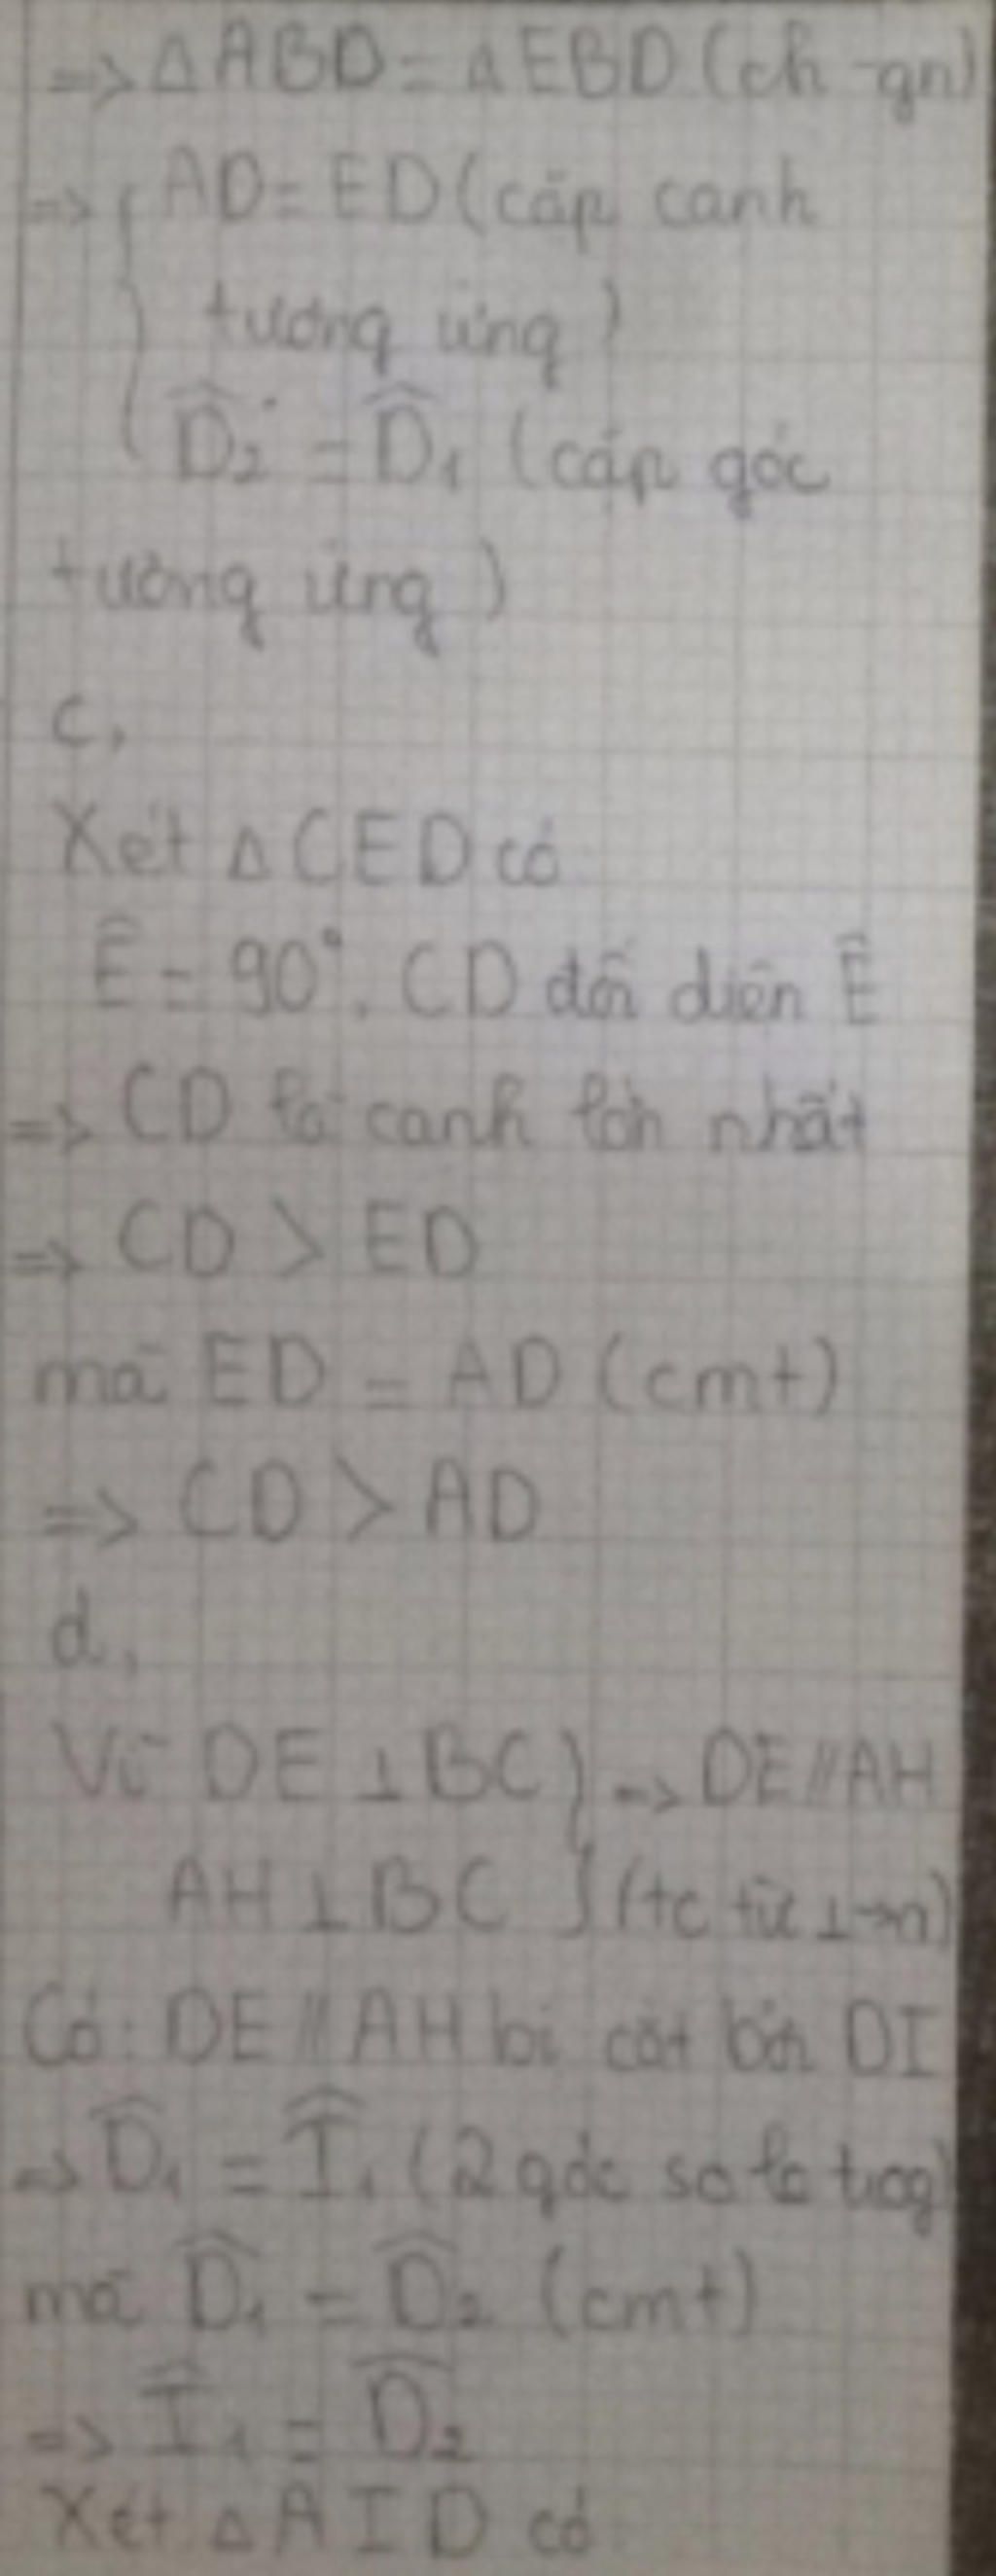 => Δ ABD = Δ EBD (ch - gn)
=> { AD = ED (cặp cạnh
tương ứng)
D̂₂ = D̂₁ (cặp góc
tương ứng)
c,
Xét Δ CED có
Ê = 90°, CD đối diện Ê
=> CD là cạnh lớn nhất
=> CD > ED
mà ED = AD (cmt)
=> CD > AD
d,
Vì DE ⊥ BC } => DE // AH
AH ⊥ BC } (tc từ ⊥ → //)
Có: DE // AH bị cắt bởi DI
=> D̂₁ = Î₁ (2 góc so le trog)
mà D̂₁ = D̂₂ (cmt)
=> Î₁ = D̂₂
Xét Δ AID có